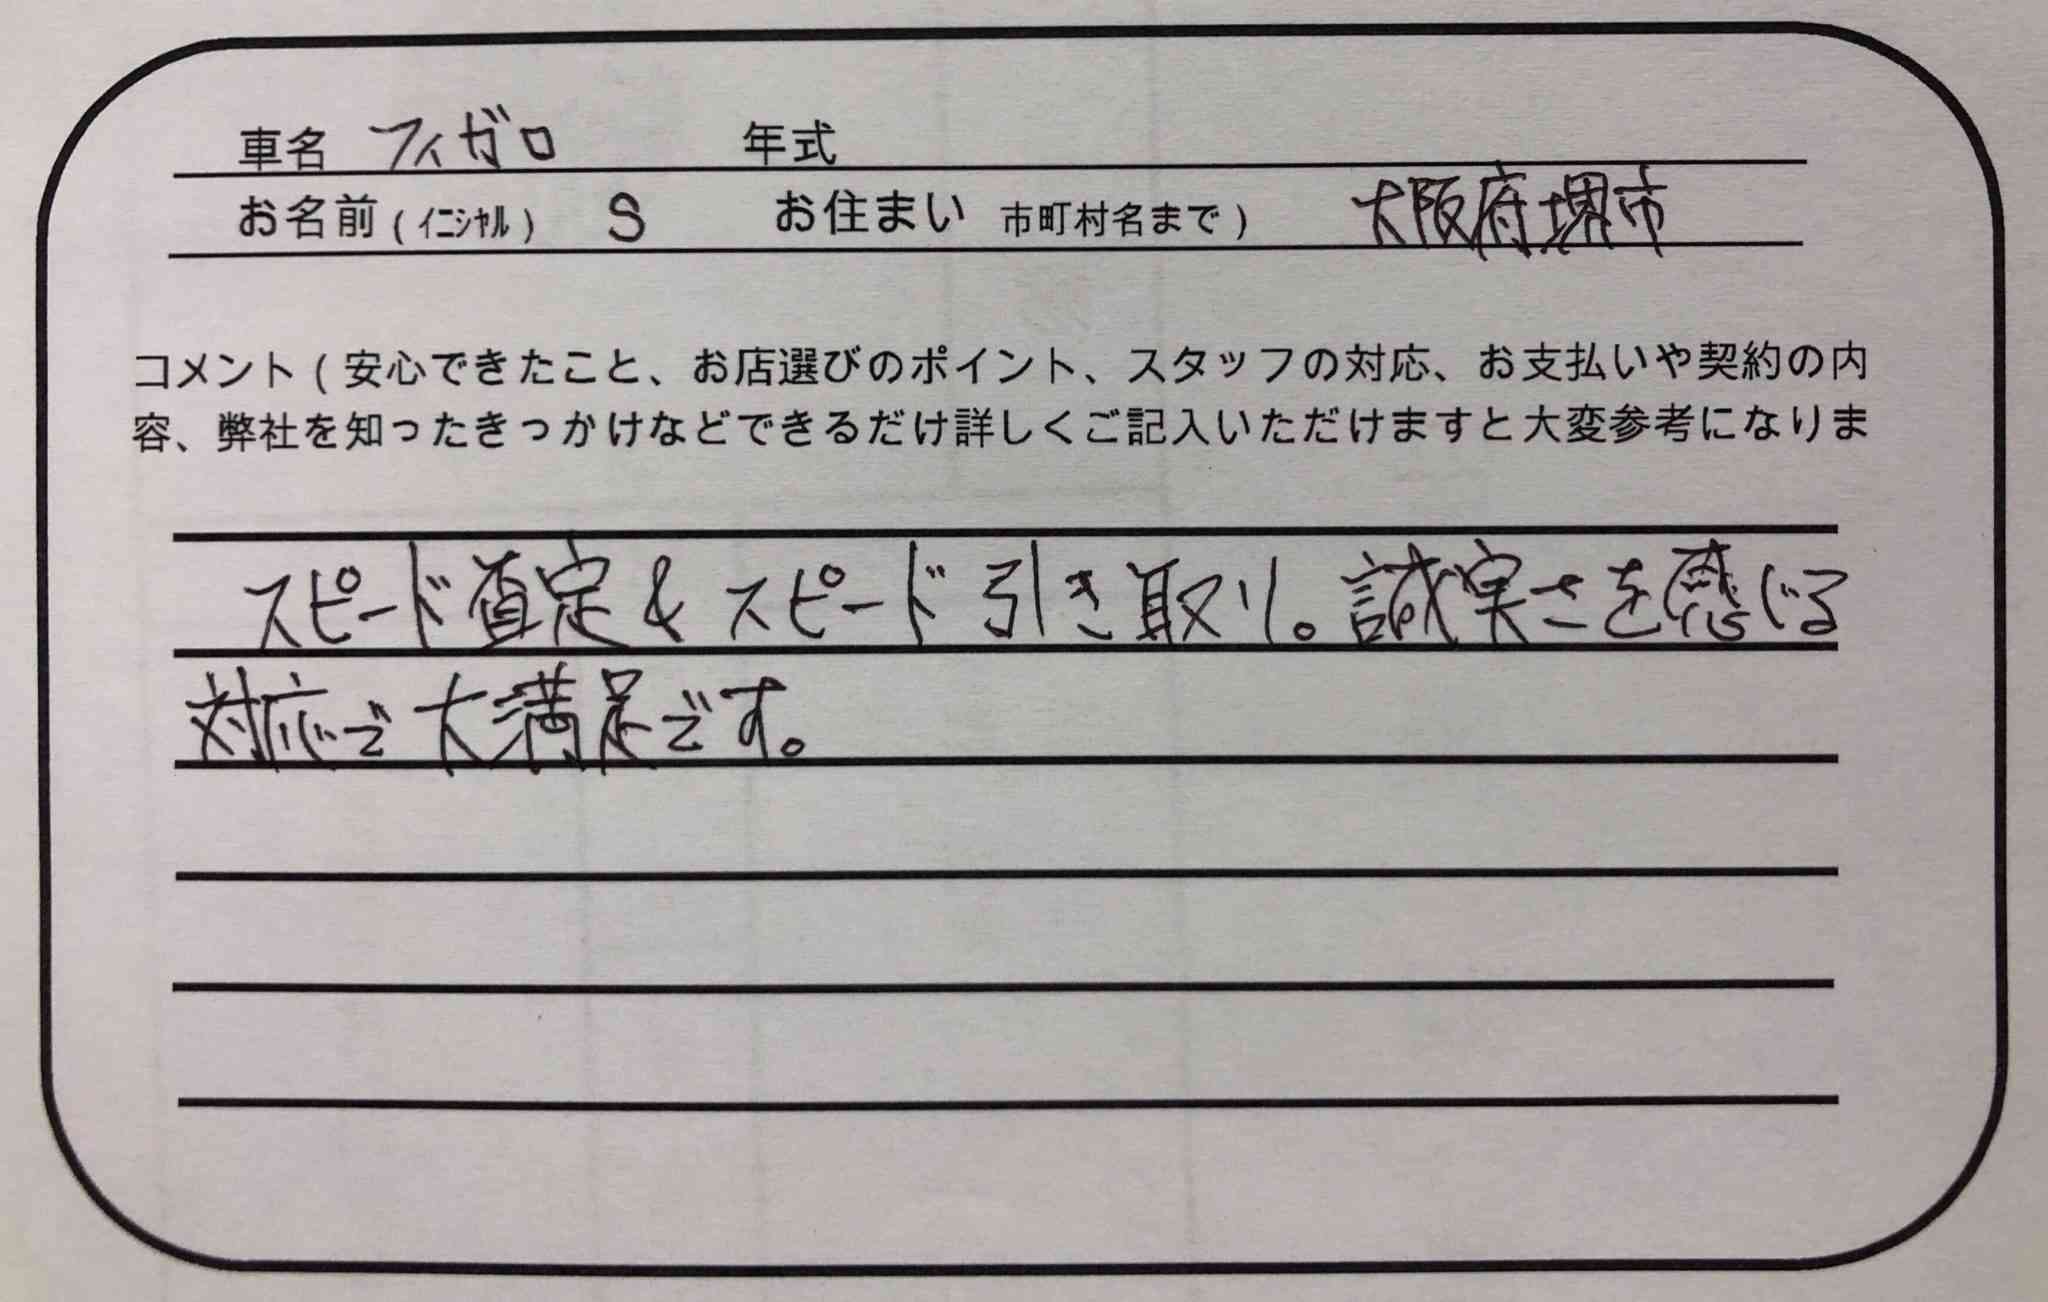 車名 フィガロ 年式
お名前(ｲﾆｼｬﾙ) S お住まい 市町村名まで) 大阪府堺市
コメント(安心できたこと、お店選びのポイント、スタッフの対応、お支払いや契約の内
容、弊社を知ったきっかけなどできるだけ詳しくご記入いただけますと大変参考になりま
スピード査定&スピード引き取り。誠実さを感じる
対応で大満足です。